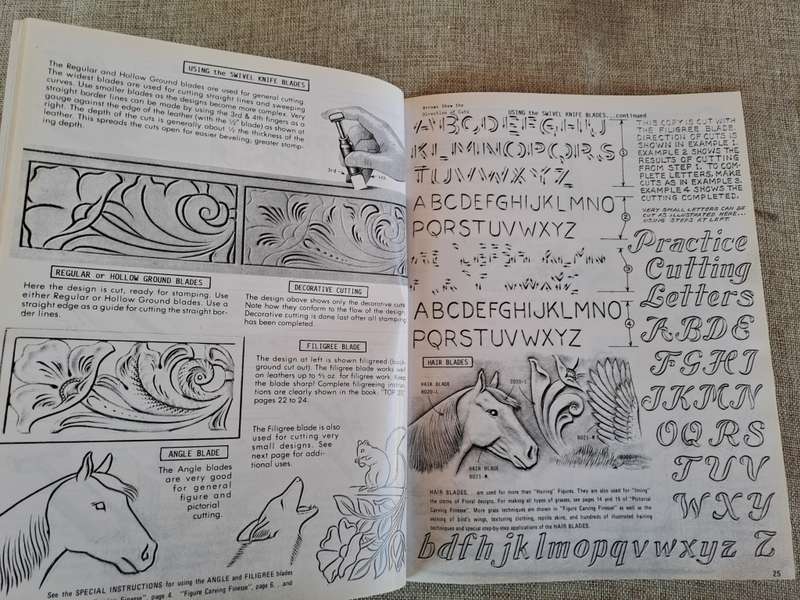 USING the SWIVEL KNIFE BLADES
The Regular and Hollow Ground blades are used for general cutting.
The widest blades are used for cutting straight lines and sweeping
curves. Use smaller blades as the designs become more complex. Very
straight border lines can be made by using the 3rd & 4th fingers as a
gauge against the edge of the leather (with the ½" blade) as shown at
right. The depth of the cuts is generally about ½ the thickness of the
leather. This spreads the cuts open for easier beveling; greater stamp-
ing depth.
3rd
4th
REGULAR or HOLLOW GROUND BLADES
Here the design is cut, ready for stamping. Use
either Regular or Hollow Ground blades. Use a
straight edge as a guide for cutting the straight bor-
der lines.
DECORATIVE CUTTING
The design above shows only the decorative cuts
Note how they conform to the flow of the design
Decorative cutting is done last after all stamping
has been completed.
FILIGREE BLADE
The design at left is shown filigreed
ground cut out). The filigree blade works
on leathers up to oz. for filigree work. Keep
the blade sharp! Complete filigreeing
tions are clearly shown in the book, "TOP
pages 22 to 24.
The Filigree blade is also
used for cutting very
small designs. See
next page for addi-
tional uses.
ANGLE BLADE
The Angle blades
are very good
for general
figure and
pictorial
cutting.
See the SPECIAL INSTRUCTIONS for using the ANGLE and FILIGREE blades
Finesse", page 4. "Figure Carving Finesse", page 6. and
Arrows Show the
Direction of Cuts
USING the SWIVEL KNIFE BLADES...continued
ABCDEFGHIJ
KLMNOPQRS
TUVWXYZ
1
ABCDEFGHIJKLMNO
PQRSTUVWXYZ
2
3
ABCDEFGHIJKLMNO
PQRSTUVWXYZ
4
THIS COPY IS CUT WITH
THE FILIGREE BLADE.
DIRECTION OF CUTS IS
SHOWN IN EXAMPLE 1.
EXAMPLE 2 SHOWS THE
RESULTS OF CUTTING
FROM STEP 1. TO COM-
PLETE LETTERS, MAKE
CUTS AS IN EXAMPLE 3.
EXAMPLE 4 SHOWS THE
CUTTING COMPLETED.
VERY SMALL LETTERS CAN BE
CUT AS ILLUSTRATED HERE...
USING STEPS AT LEFT.
Practice
Cutting
Letters
ABDE
FGHI
JKMN
OQRS
TUV
WXY
HAIR BLADES
HAIR BLADE
8020-L
HAIR BLADE
8021-M
HAIR BLADES... are used for more than "Hairing" Figures. They are also used for "lining"
the stems of Floral designs. For making all types of grasses, see pages 14 and 15 of "Pictorial
Carving Finesse". More grass techniques are shown in "Figure Carving Finesse" as well as the
veining of bird's wings, texturing clothing, reptile skin, and hundreds of illustrated hairing
techniques and special step-by-step applications of the HAIR BLADES.
bdfhjklmopqvwxyz Z
25